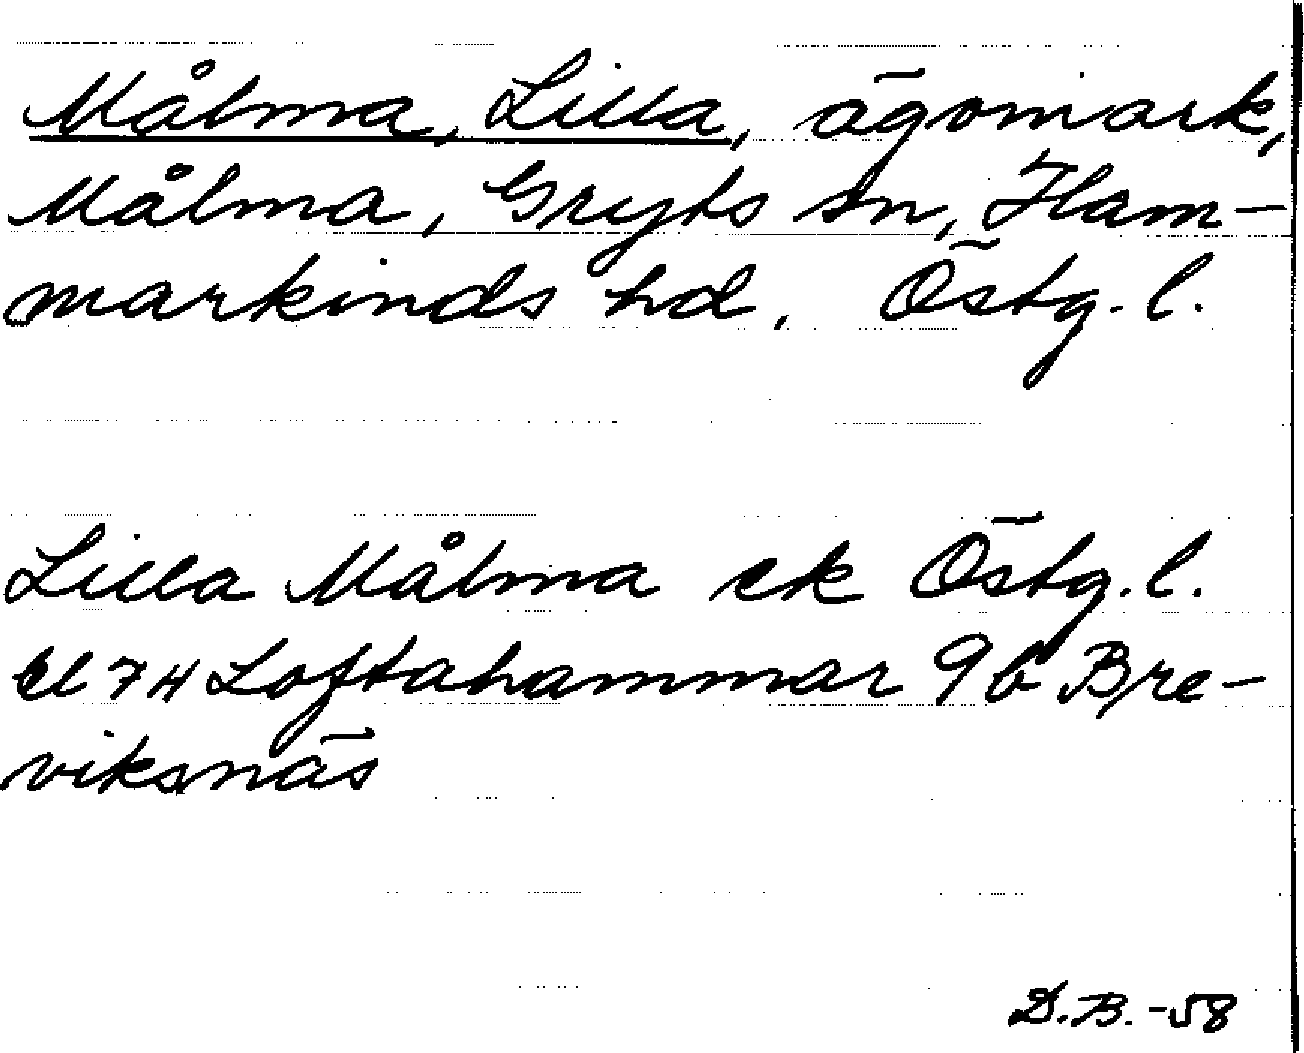 Målma, Lilla, ägomark,
Målma, Gryts sn, Ham-
markinds hd, Östg. l.
Lilla Målma ek Östg. l.
bl 7H Loftahammar 9b Bre-
viksnäs
D.B. -58